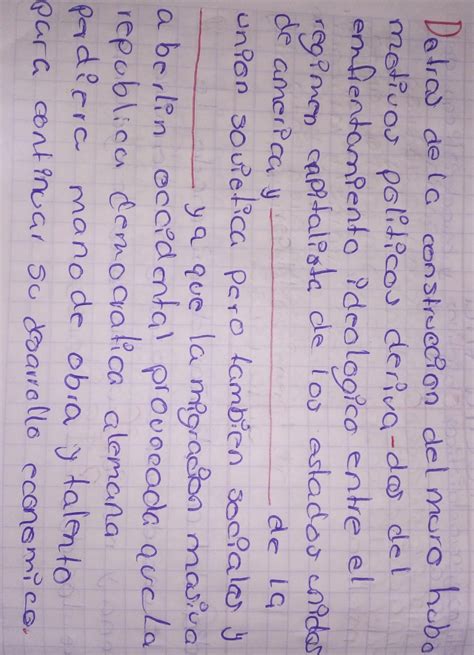 Detras de la construccion del muro hubo
motivos politicos deriva-dos del
enfrentamiento ideologico entre el
regimen capitalista de los estados unidos
de america y ________ de la
union sovietica pero tambien sociales y
________ ya que la migracion masiva
a berlin occidental provocada que la
republica democratica alemana
perdiera mano de obra y talento
para continuar su desarrollo economico.